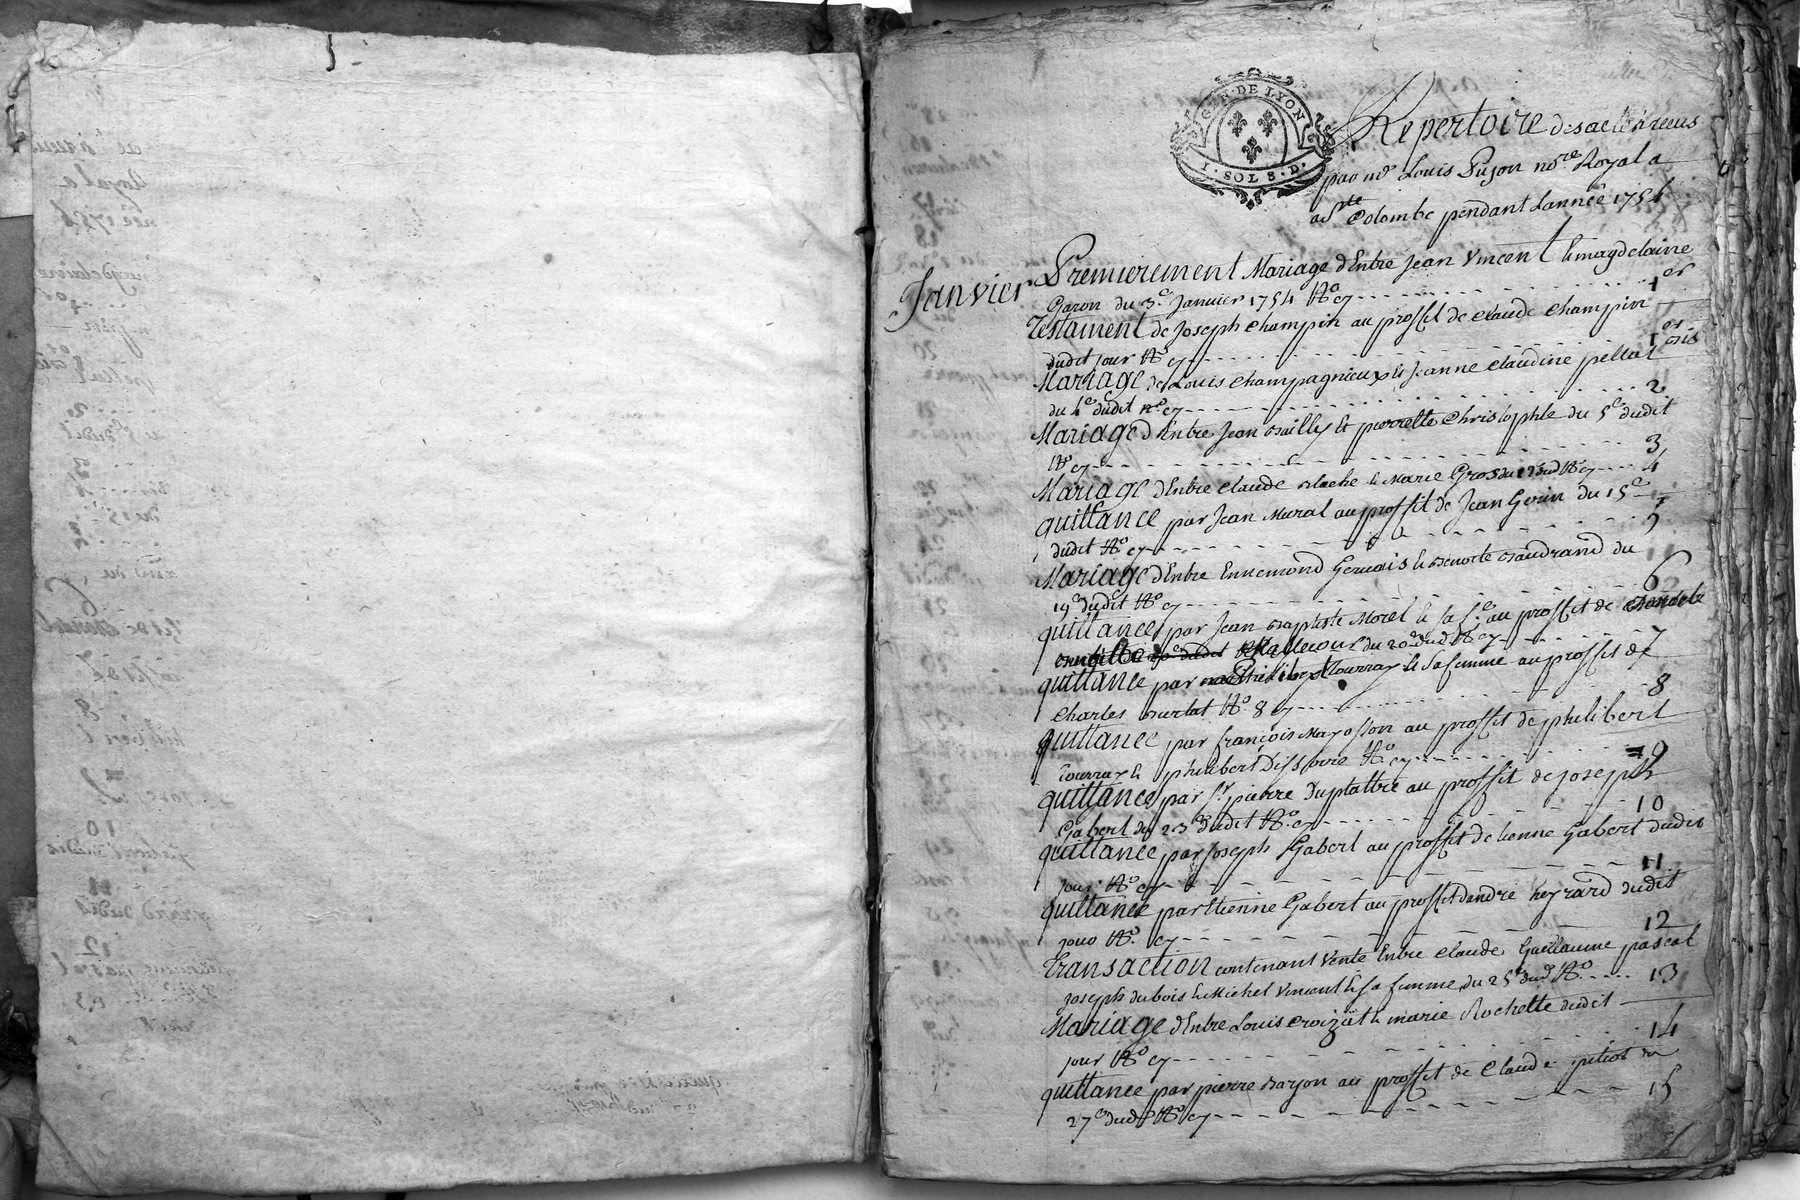 GEN · DE LYON
I · SOL 8 · D ·
Repertoire des actes receus
par me Louis Pujon nore Royal a
a Ste Colombe pendant Lannée 1754
Janvier
Premierement Mariage d'Entre Jean Vincent & magdelaine
Garon du 3e Janvier 1754 No cy - - - 1er
Testament de Joseph Champin au proffit de Claude Champin
dudit jour No cy - - - 1er bis
Mariage de Louis Champagnieux & Jeanne Claudine pellat
du 4e dudit no cy - - - 2
Mariage d'Entre Jean & pierrette Christophle du 5e dudit
No cy - - - 3
Mariage d'Entre Claude & Marie Gros No cy - - - 4
quittance par Jean Murat au proffit de Jean Genin du 15e
dudit No cy - - - 5
Mariage d'Entre Ennemond Gervais & du
19e dudit No cy - - - 6
quittance par Jean Baptiste Morel & sa fe au proffit de
du 20e dud No cy - - - 7
quittance par Tourray & sa femme au proffit de
Charles Burlat No 8 cy - - - 8
quittance par françois Mayosson au proffit de philibert
Tourray & philibert No cy - - - 9
quittance par Sr pierre Duplattre au proffit de joseph
Gabert du 23e dudit No cy - - - 10
quittance par Joseph Gabert au proffit detienne Gabert dudit
jour No cy - - - 11
quittance par Etienne Gabert au proffit dandré heyrard dudit
jour No cy - - - 12
Transaction contenant Vente Entre Claude Guillaume pascal
Joseph dubois & Michel Vincent & sa femme du 25e dud No - - - 13
Mariage d'Entre Louis Croizat & marie Rochette dudit
jour No cy - - - 14
quittance par pierre Baron au proffit de Claude pitiot du
27e dud No cy - - - 15